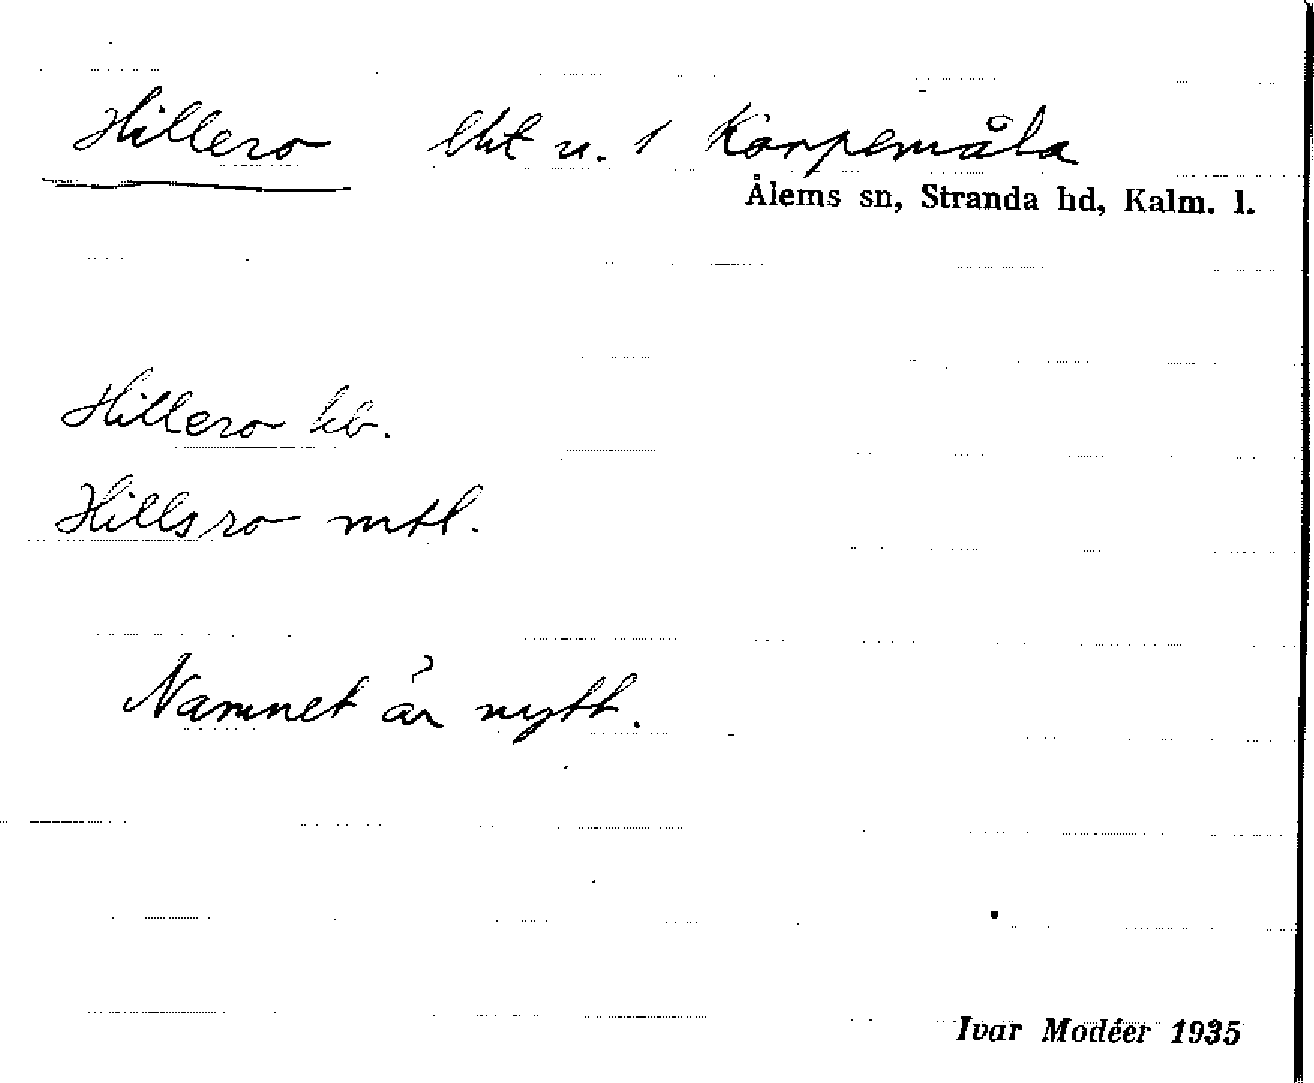 Hillero lht u. 1 Korpemåla
Ålems sn, Stranda hd, Kalm. l.
Hillero hb.
Hillsro mtl.
Namnet är nytt.
Ivar Modéer 1935